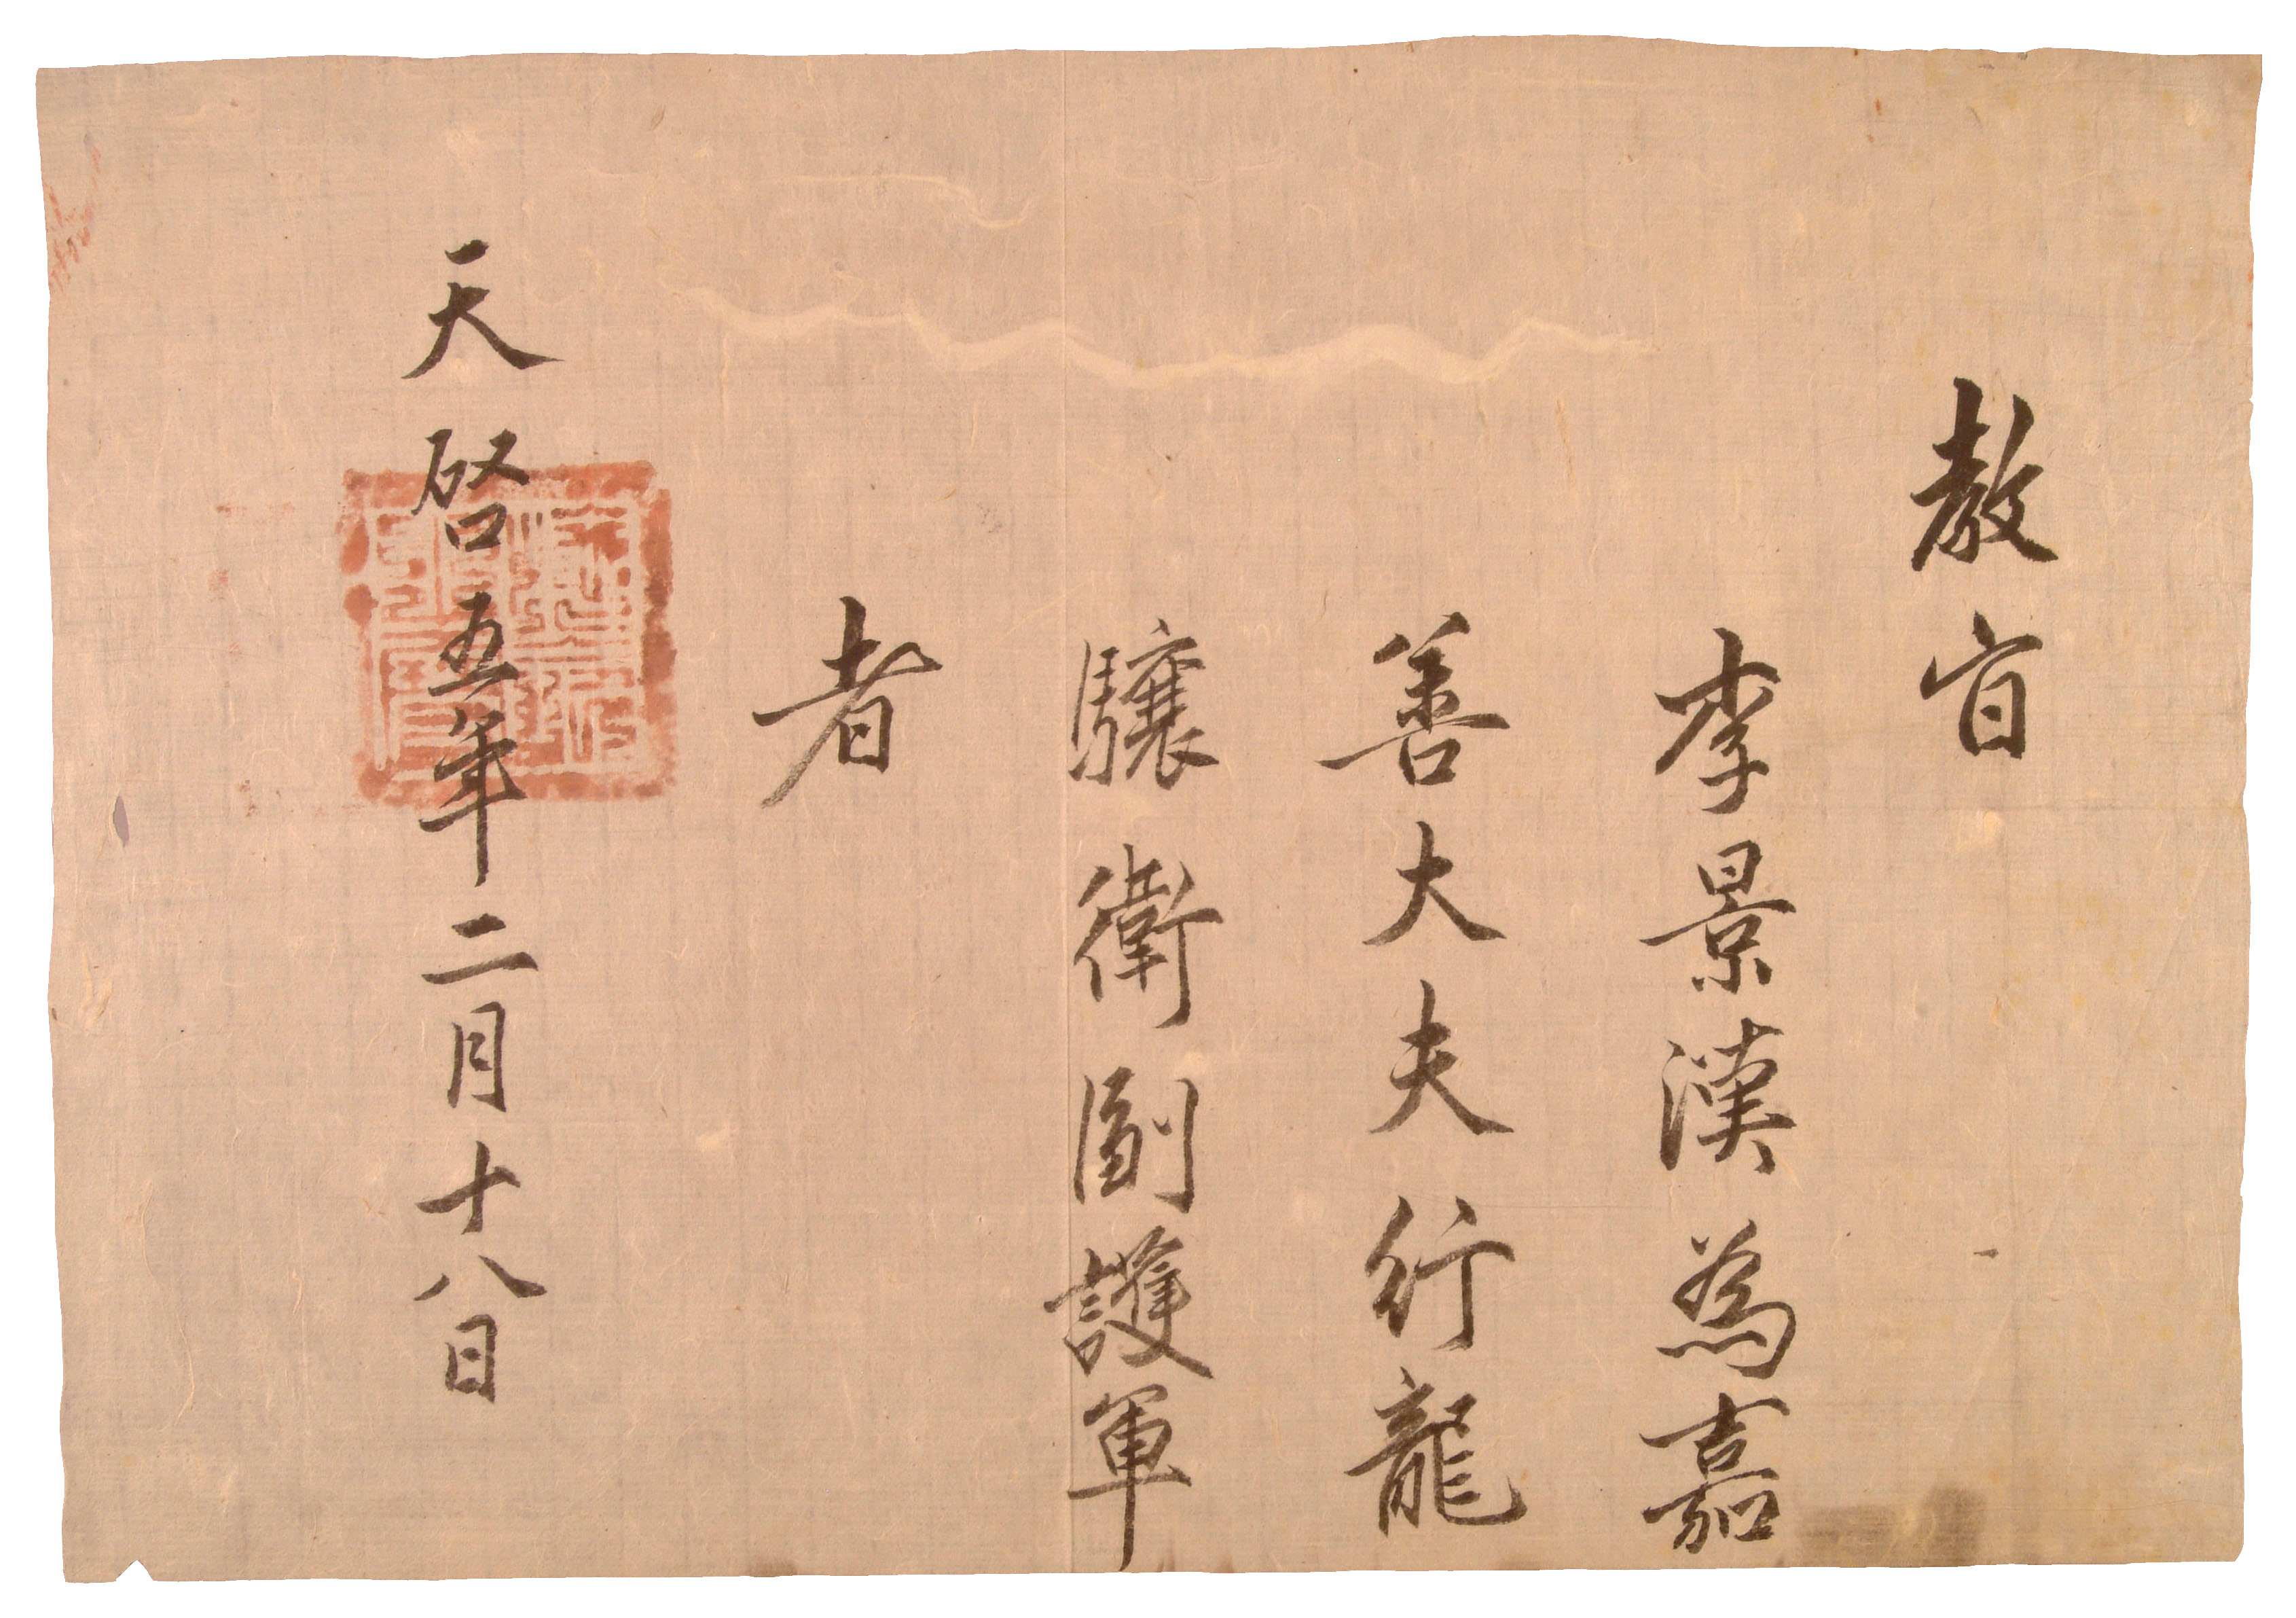 教旨
李景漢為嘉
善大夫行龍
驤衛副護軍
者
天啓五年二月十八日